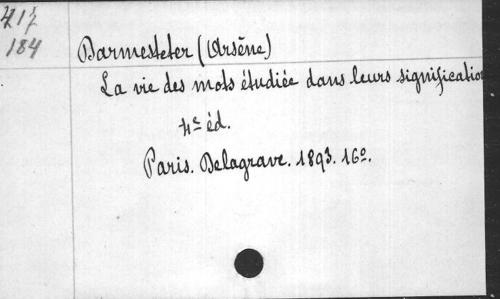 417
184
Darmesteter (Arsène)
La vie des mots étudiée dans leurs signification
4e éd.
Paris. Delagrave. 1893. 16o.